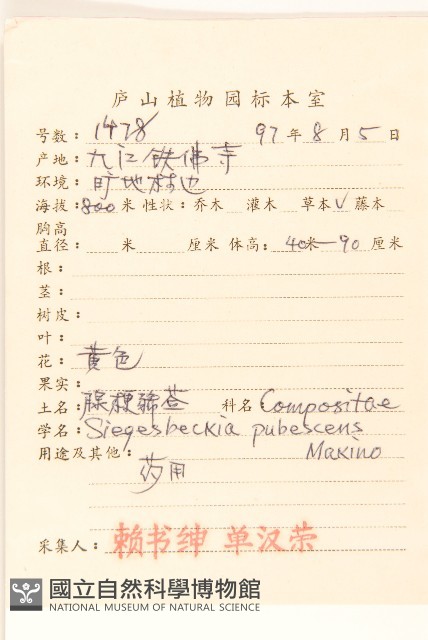 庐山植物园标本室
号数：1478 97年8月5日
产地：九江铁佛寺
环境：旷地林边
海拔：800米 性状：乔木 灌木 草本√ 藤本
胸高
直径： 米 厘米 体高：40米—90厘米
根：
茎：
树皮：
叶：
花：黄色
果实：
土名：腺梗豨莶 科名：Compositae
学名：Siegesbeckia pubescens
用途及其他： Makino
药用
采集人：赖书绅 单汉荣
國立自然科學博物館
NATIONAL MUSEUM OF NATURAL SCIENCE